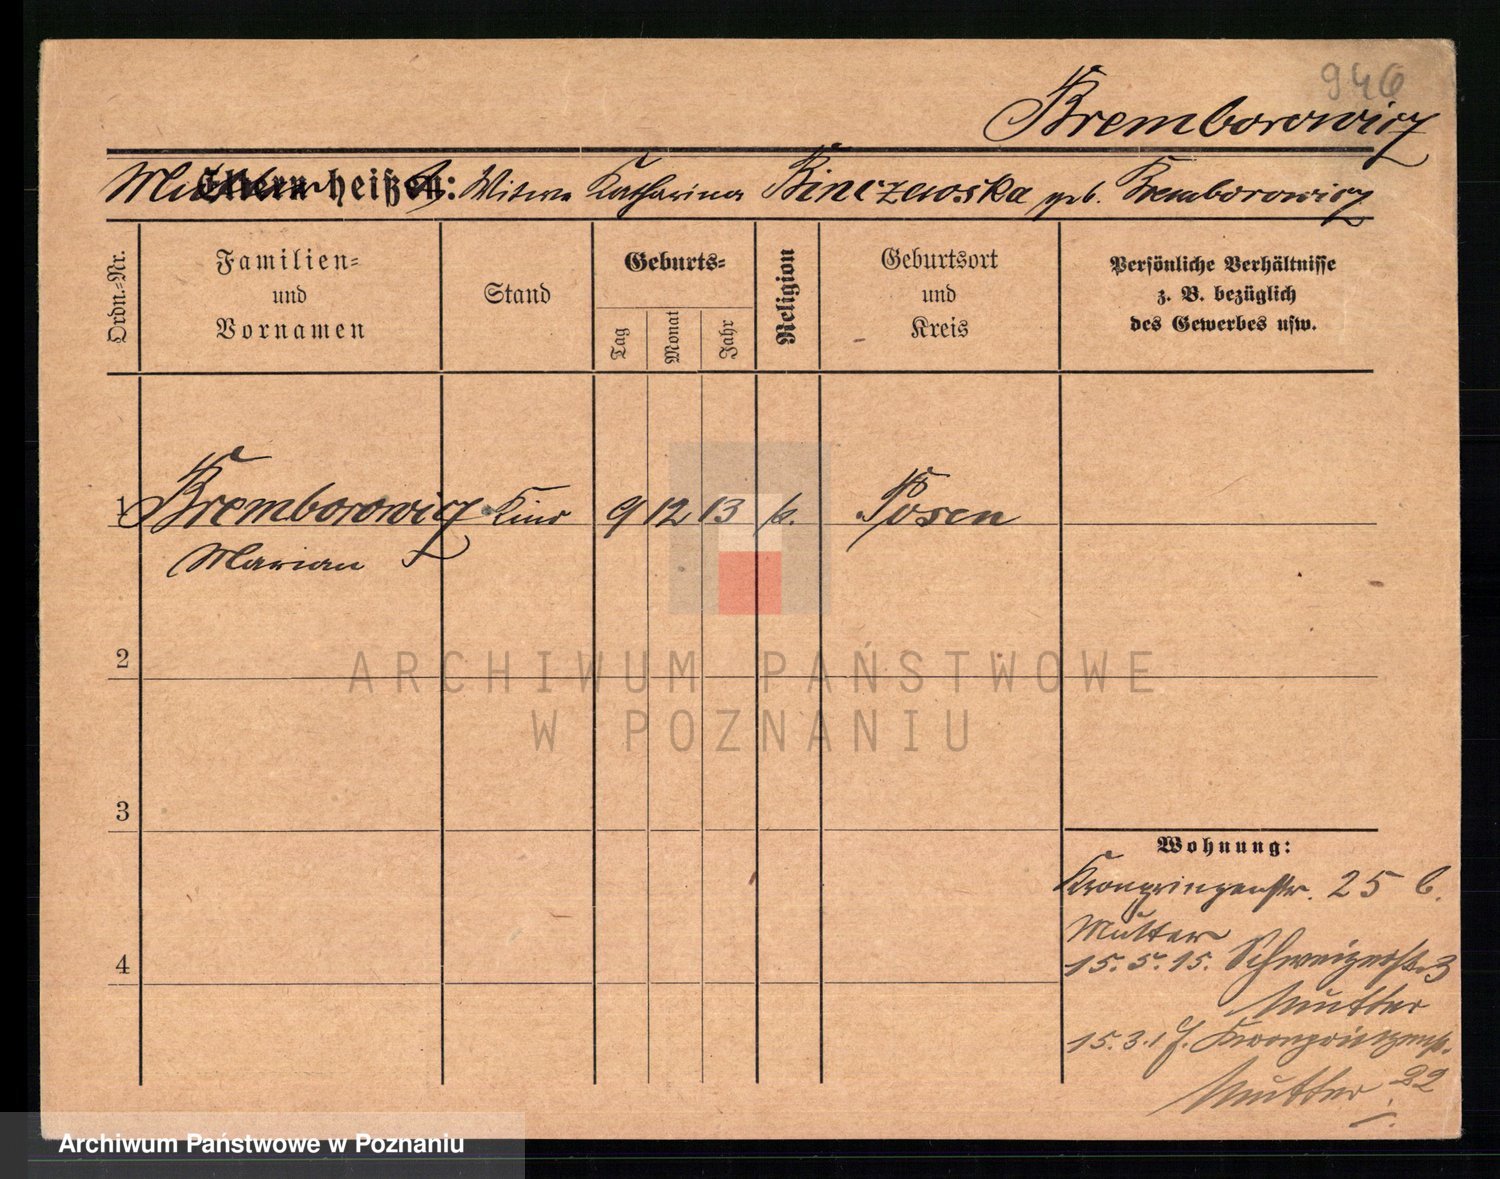 946
Bremborowicz
Eltern heißen:
Mutter Witwe Katharina Binczewska geb. Bremborowicz
Ordn.-Nr.
Familien-
und
Vornamen
Stand
Geburts-
Tag
Monat
Jahr
Religion
Geburtsort
und
Kreis
Persönliche Verhältnisse
z. B. bezüglich
des Gewerbes usw.
1 Bremborowicz Kind 9 12 13 k. Posen
Marian
2
3
4
Wohnung:
Kronprinzenstr. 25 b.
Mutter
15. 5. 15. Schweizerstr. 3
Mutter
15. 3. 17. Kronprinzenstr.
Mutter 22
ARCHIWUM PAŃSTWOWE
W POZNANIU
Archiwum Państwowe w Poznaniu